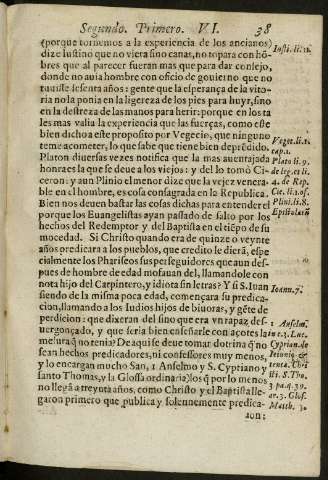 Segundo. Primero. VI. 38
(porque tornemos a la experiencia de los ancianos)
dize Iustino que no viera sino canas, no topara con hõ-
bres que al parecer fueran mas que para dar consejo,
donde no auia hombre con oficio de gouierno que no
tuuiesse sesenta años: gente que la esperança de la vito-
ria no la ponia en la ligereza de los pies para huyr, sino
en la destreza de las manos para herir: porque en los ta
les mas valia la experiencia que las fuerças, como esse
bien dicho a este proposito por Vegecio, que ninguno
teme acometer, lo que sabe que tiene bien deprẽdido.
Platon diuersas vezes notifica que la mas auentajada
honra es la que se deue a los viejos: y del lo tomò Ci-
ceron: y aun Plinio el menor dize que la vejez venera-
ble en el hombre, es cosa consagrada en la Republica.
Bien nos deuen bastar las cosas dichas para entender el
porque los Euangelistas ayan passado de salto por los
hechos del Redemptor y del Baptista en el tiẽpo de su
mocedad. Si Christo quando era de quinze o veynte
años predicara a los pueblos, que credito le dierã, espe
cialmente los Phariseos sus perseguidores que aun des-
pues de hombre de edad mofauan del, llamandole con
nota hijo del Carpintero, y idiota sin letras? Y si S. Iuan
siendo de la misma poca edad, començara su predica-
cion, llamando a los Iudios hijos de biuoras, y gẽte de
perdicion: que dixeran del sino que era vn rapaz des-
uergonçado, y que seria bien enseñarle con açotes la
mesura q̃ no tenia? De aqui se deue tomar dotrina q̃ no
sean hechos predicadores, ni confessores muy moços,
y lo encargan mucho San, 1 Anselmo y S. Cypriano y
santo Thomas, y la Glossa ordinaria) los q̃ por lo menos
no llegã a treynta años, como Christo y el Baptista lle-
garon primero que publica y solennemente predica-
Iusti. li. 11.
Veget. li. 1.
cap. 1.
Plato li. 9.
de leg. et li.
4. de Rep.
Cic. li. 1. of.
Plini. li. 8.
Ioann. 7.
1 Anselm.
in c. 3. Luc.
Cyprian. de
S. Tho.
3 pa. q. 39.
ar. 3. Glos.
Matth. 3.